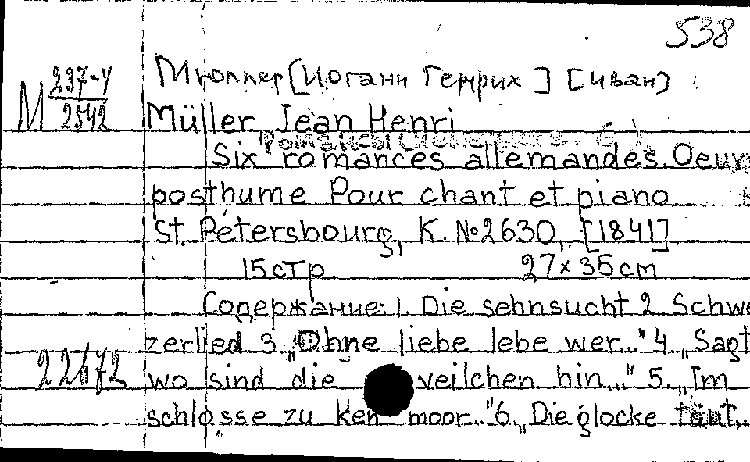 538
М 237-4/2542
Мюллер [Иоганн Генрих] [Иван]
Müller Jean Henri
Six romances allemandes. Oeuv
posthume Pour chant et piano
St. Pétersbourg, К. №2630, [1841]
15 стр 27×35 cm
Содержание: 1. Die sehnsucht 2. Schwe
zerlied 3. „Ohne liebe lebe wer..." 4. „Sagt
22672 wo sind die veilchen hin..." 5. „Im
schlosse zu Ken moor.." 6. „Die glocke